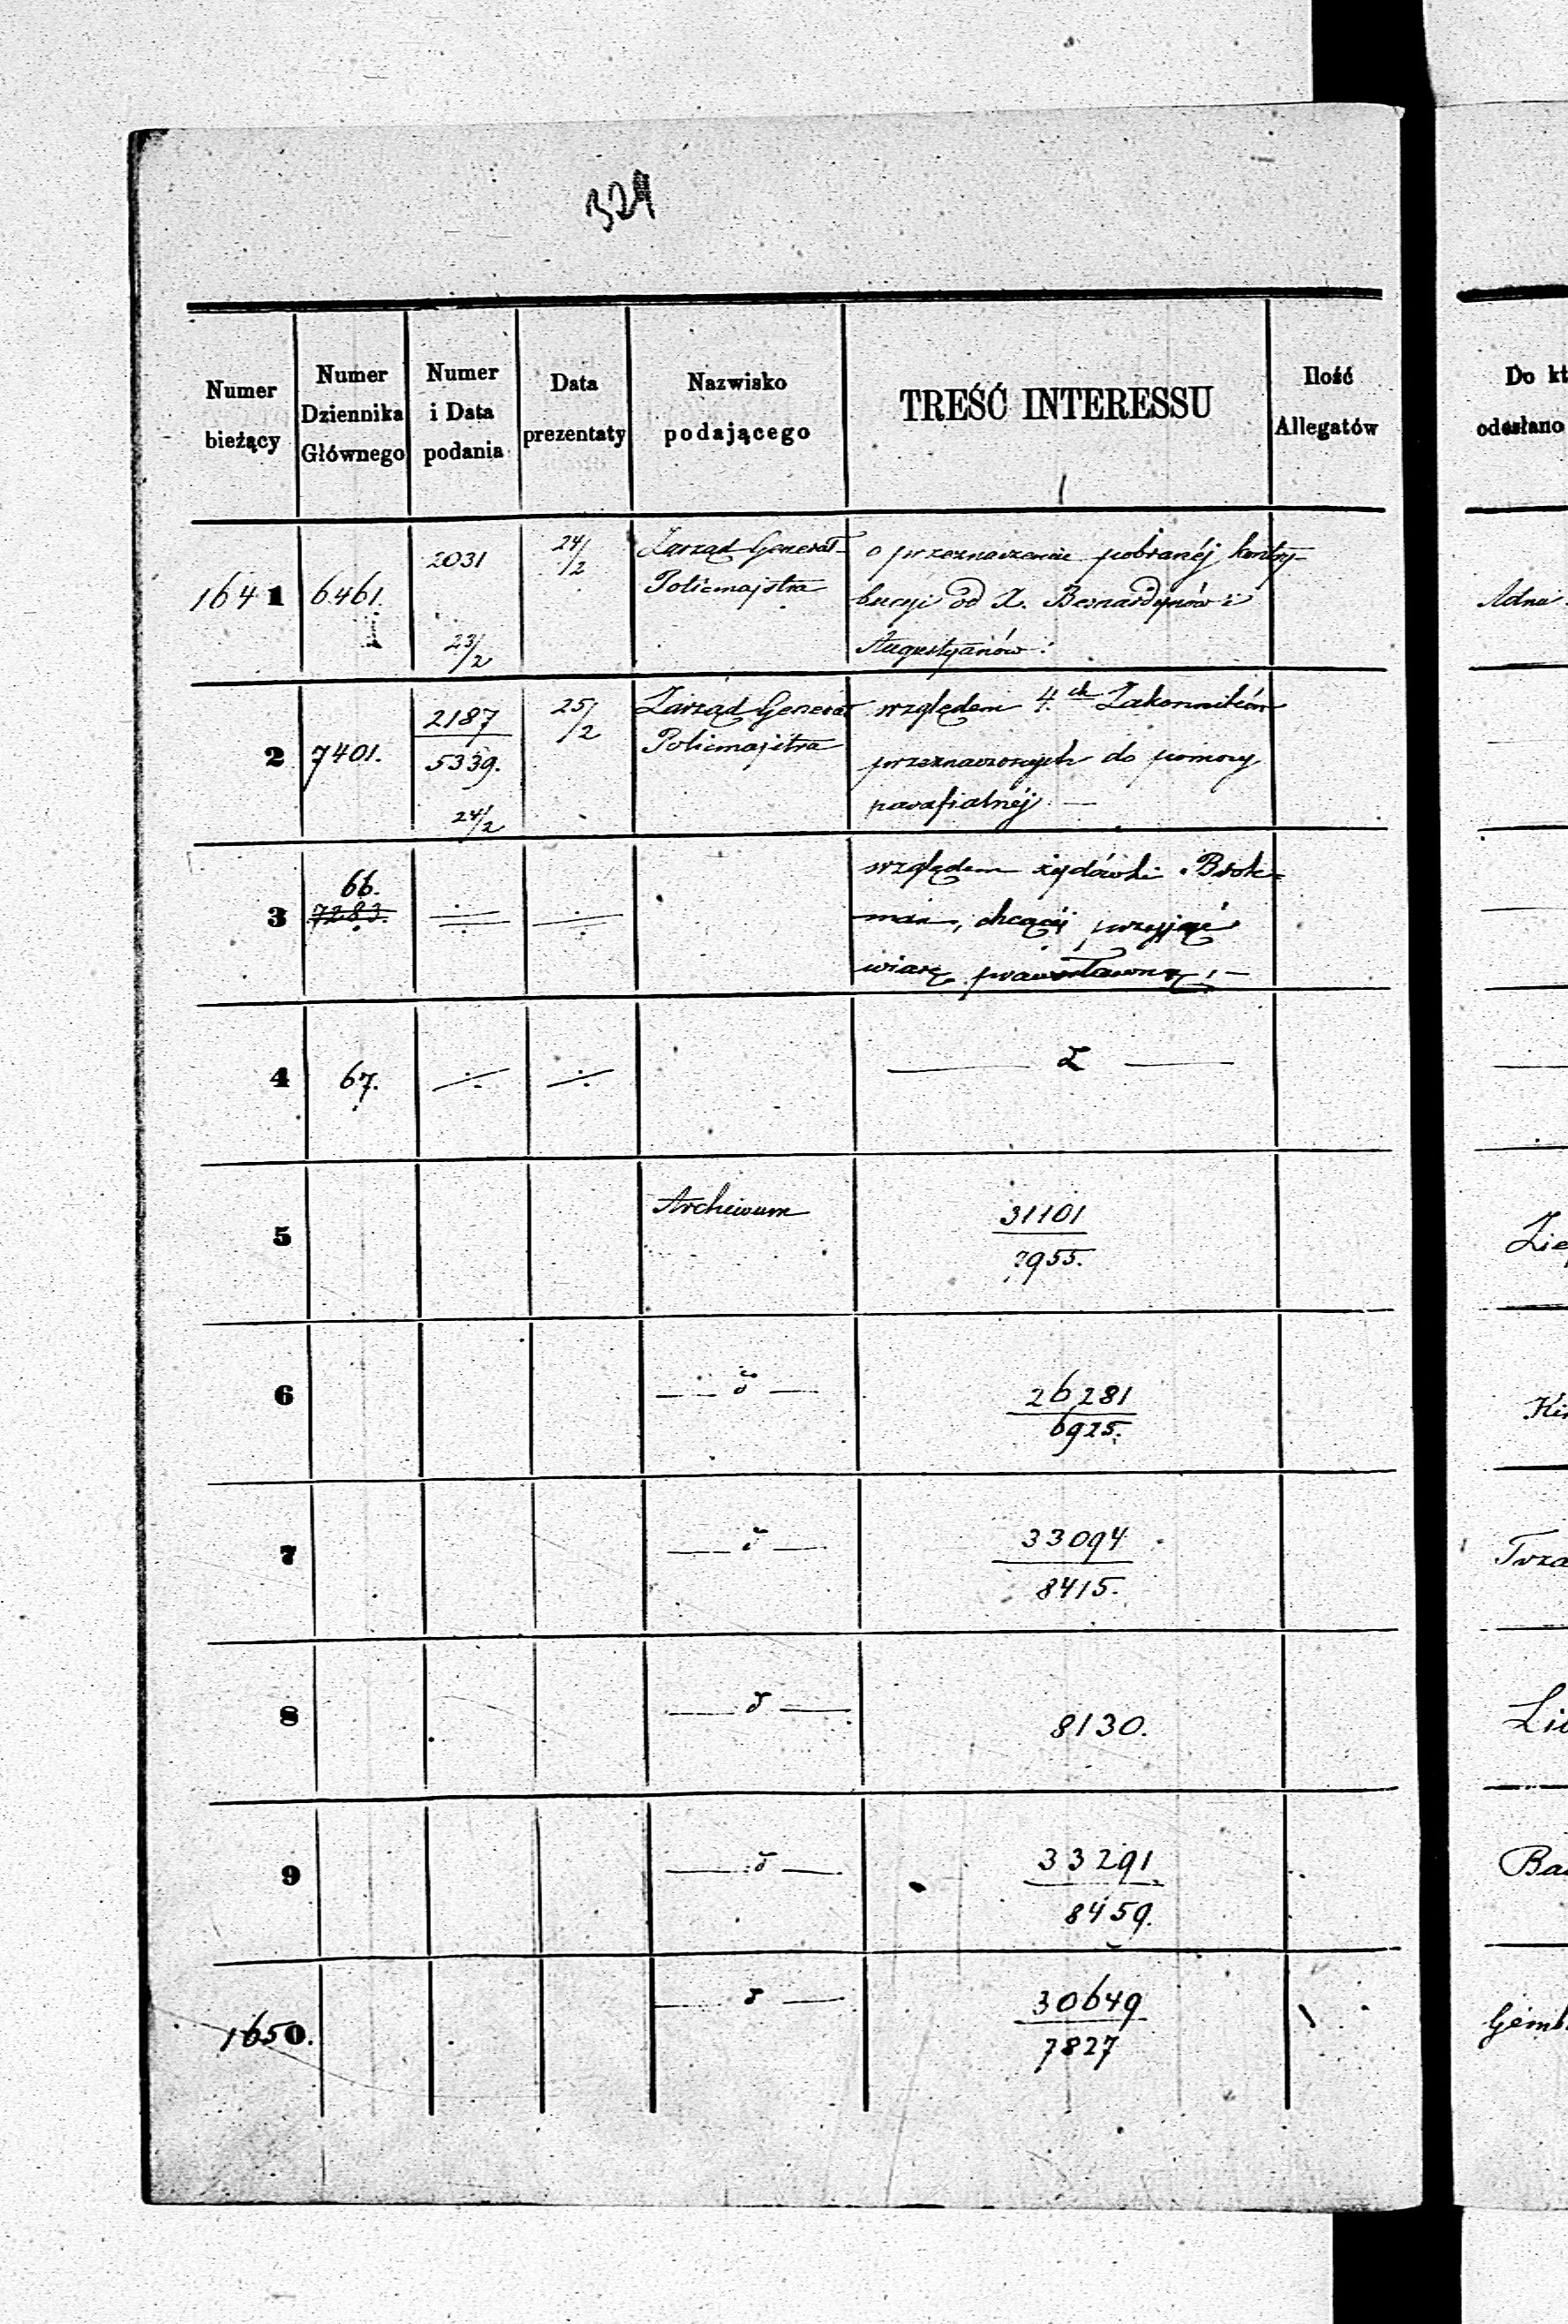 329
Numer bieżący
Numer Dziennika Głównego
Numer i Data podania
Data prezentaty
Nazwisko podającego
TREŚĆ INTERESSU
Ilość Allegatów
Do kt
odesłano
1641 6461. 2031 23/2 24/2 Zarząd Generał o przeznaczenie pobranéj kontry-
Policmajstra bucyi od X. Bernardynów i
Augustyanów.
Adna
2 7401. 2187 25/2 Zarząd Generał względem 4.ch Zakonników
5339. Policmajstra przeznaczonych do pomocy
24/2 parafialnéj. —
66. względem żydówki Brok-
3 7283. ÷ ÷ man, chcącéj przyjąć
wiarę prawosławną. —
4 67. ÷ ÷ — Z —
5 Archiwum 31101
7955.
Zie
6 — d — 26281
6925.
7 — d — 33094
8415.
8 — d — 8130.
9 — d — 33291
8459.
Ba
1650. — d — 30649
7827
Gemb